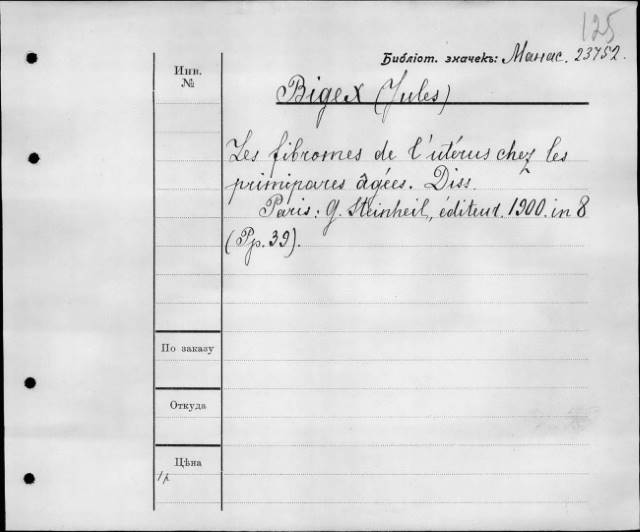 125
Библіот. значекъ: Манас. 23752.
Инв.
№
Bigex (Jules)
Les fibromes de l'utérus chez les
primipares âgées. Diss.
Paris: G. Steinheil, éditeur. 1900. in 8
(Pp. 39).
По заказу
Откуда
Цѣна
1 р.